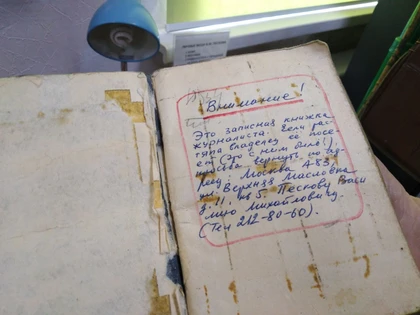 Внимание!
Это записная книжка
журналиста. Если рас-
тяпа владелец ее посе-
ет (Это с ним было!),
просьба вернуть по ад-
ресу: Москва А-83,
ул. Верхняя Масловка
д. 11, кв 5. Пескову Васи
лию Михайловичу.
(Тел 212-80-60).